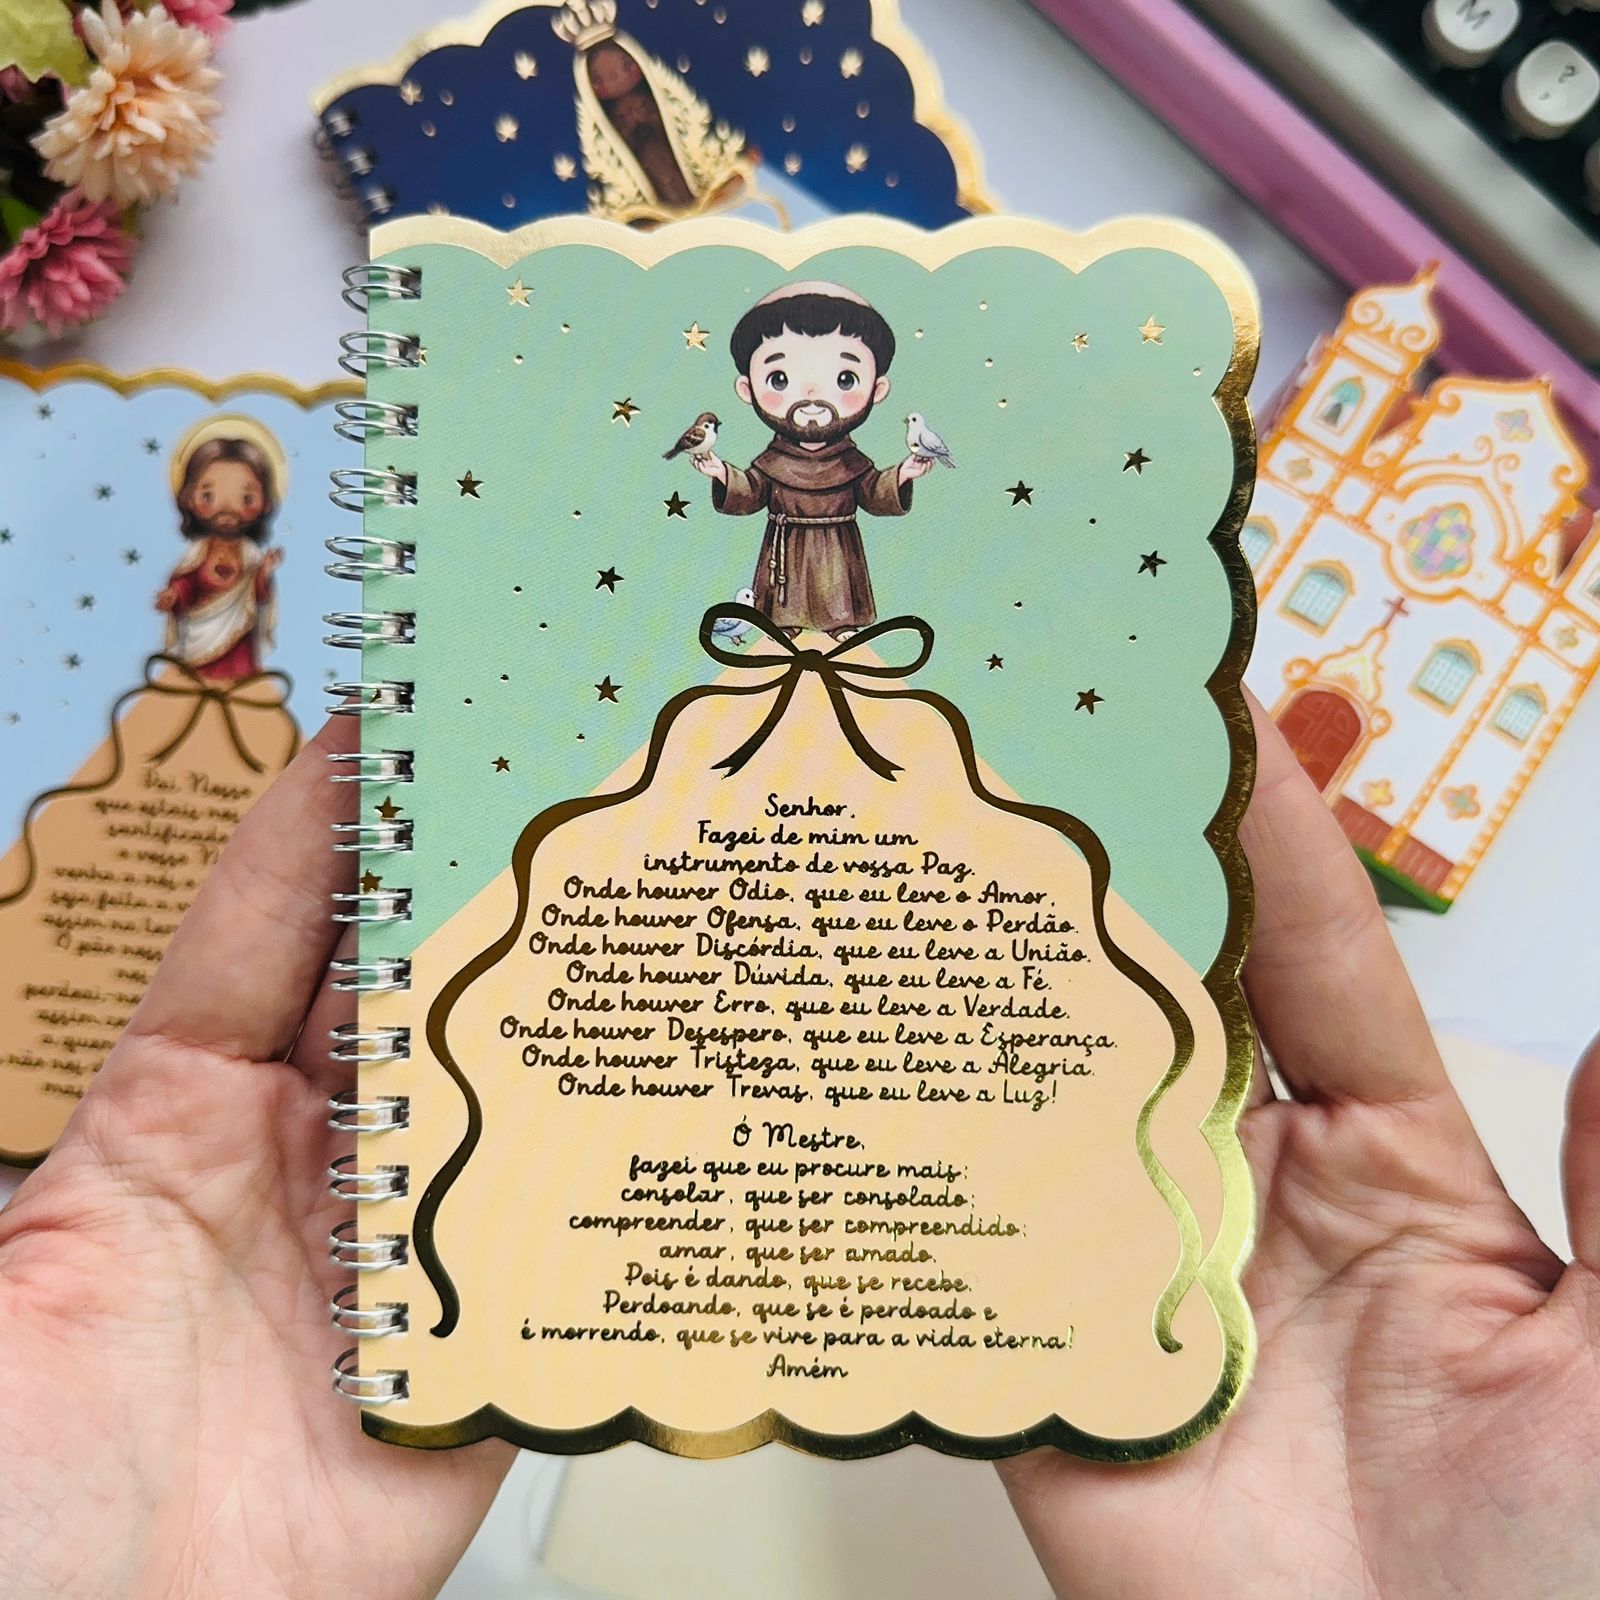 Senhor,
Fazei de mim um
instrumento de vossa Paz.
Onde houver Ódio, que eu leve o Amor,
Onde houver Ofensa, que eu leve o Perdão.
Onde houver Discórdia, que eu leve a União.
Onde houver Dúvida, que eu leve a Fé.
Onde houver Erro, que eu leve a Verdade.
Onde houver Desespero, que eu leve a Esperança.
Onde houver Tristeza, que eu leve a Alegria.
Onde houver Trevas, que eu leve a Luz!
Ó Mestre,
fazei que eu procure mais:
consolar, que ser consolado;
compreender, que ser compreendido;
amar, que ser amado.
Pois é dando, que se recebe.
Perdoando, que se é perdoado e
é morrendo, que se vive para a vida eterna!
Amém
Pai Nosso
que estais nos
santificado
o vosso
venha a nós o
seja feita a
assim na
O pão
perdoai-
assim
a quem
não nos
M
?
,